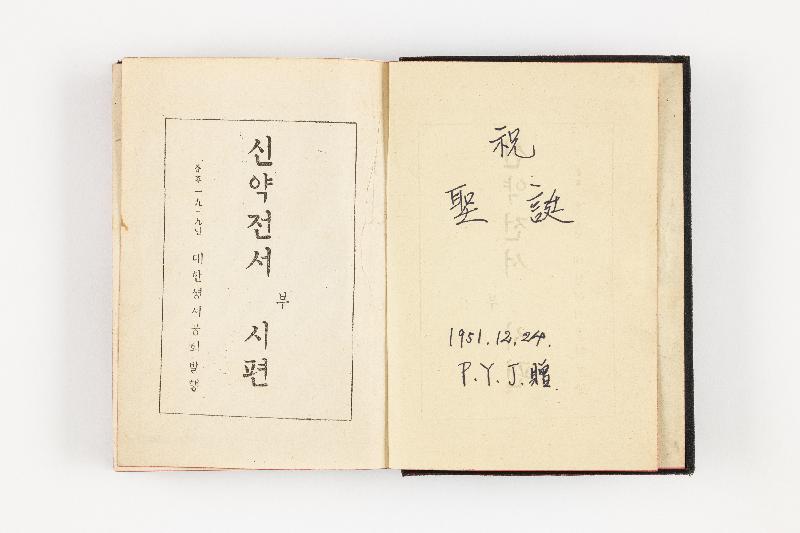 신약전서 부 시편
대한성서공회발행
祝
聖誕
1951.12.24.
P.Y.J.贈